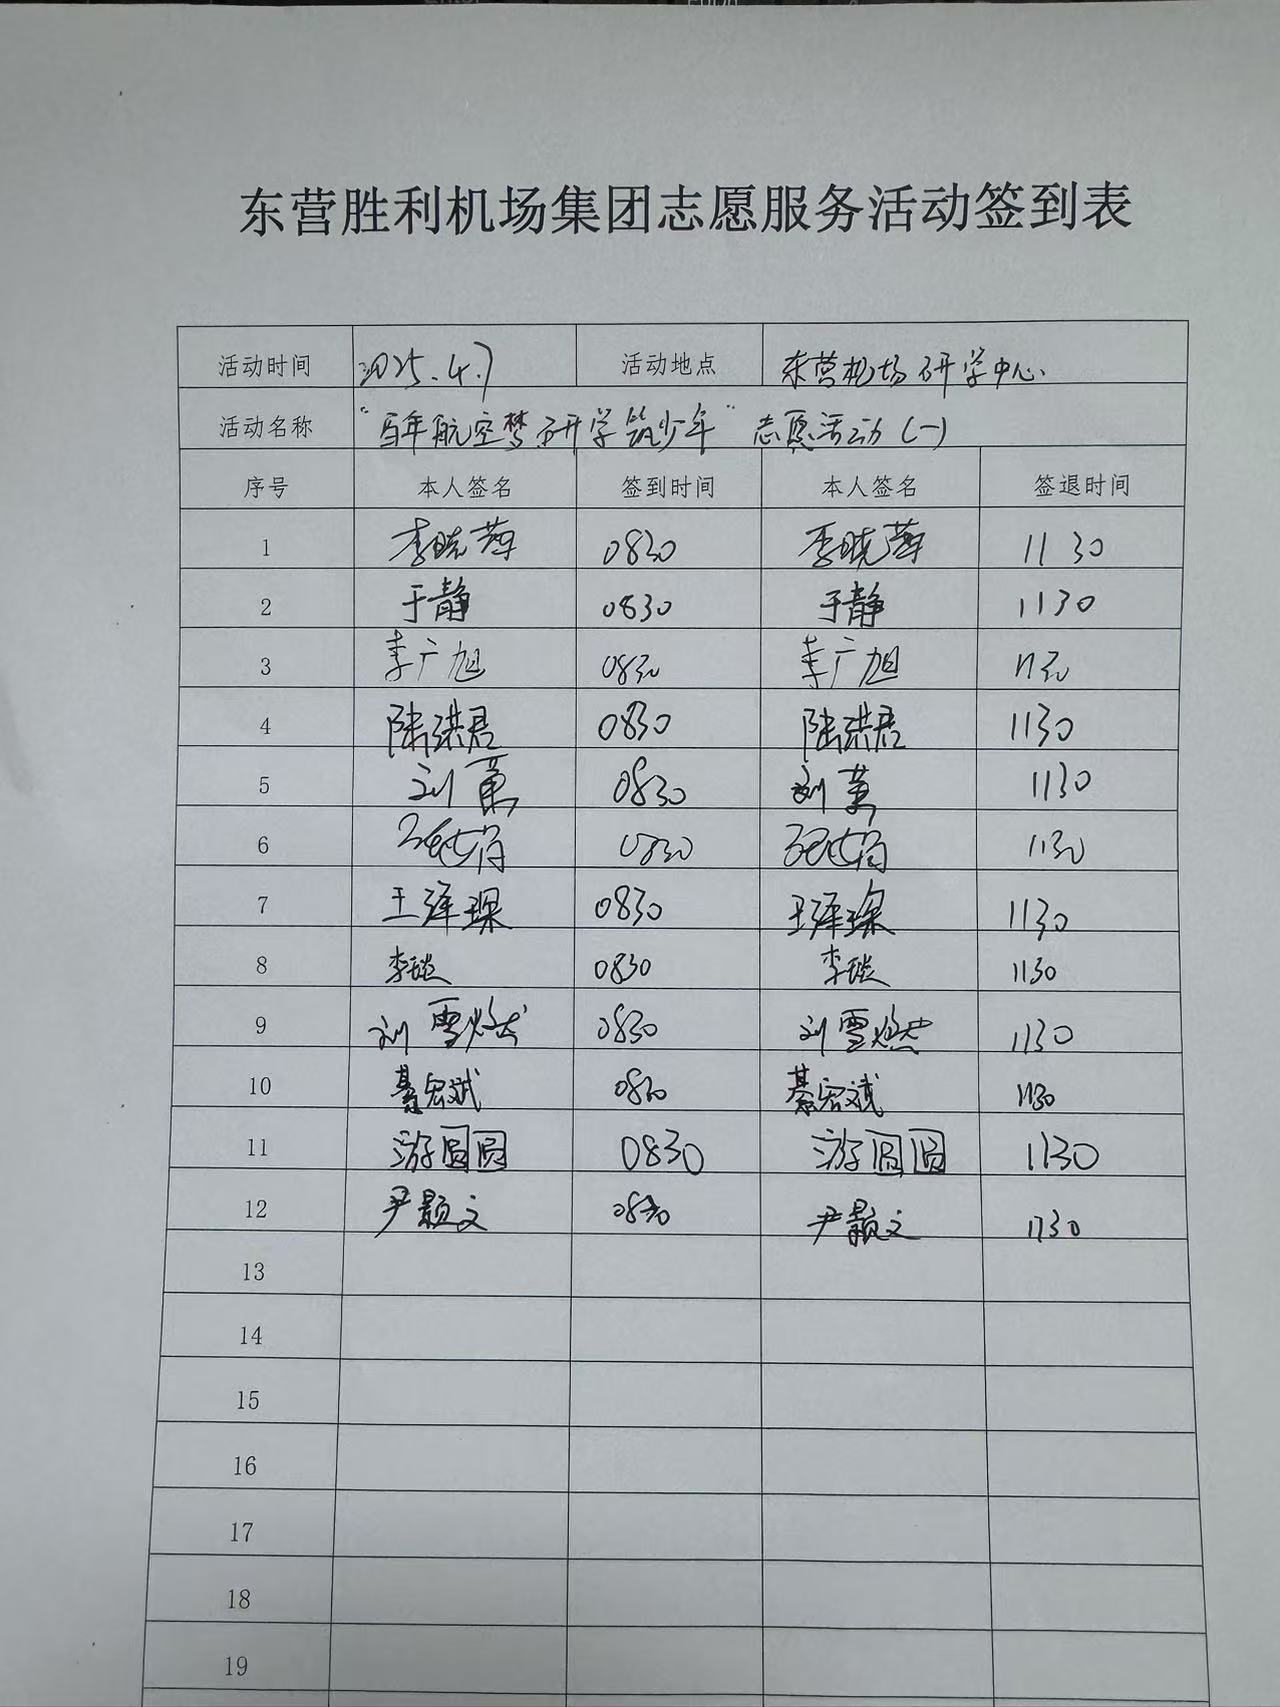 东营胜利机场集团志愿服务活动签到表
活动时间 2025.4.7 活动地点 东营机场研学中心
活动名称 "百年航空梦 研学筑少年" 志愿活动(一)
序号 本人签名 签到时间 本人签名 签退时间
1 李晓萍 0830 李晓萍 1130
2 于静 0830 于静 1130
3 李广旭 0830 李广旭 1130
4 陆洪君 0830 陆洪君 1130
5 刘 0830 刘 1130
6 0830 1130
7 王泽琛 0830 王泽琛 1130
8 李琰 0830 李琰 1130
9 刘雪燃 0830 刘雪燃 1130
10 綦宏斌 0830 綦宏斌 1130
11 游圆圆 0830 游圆圆 1130
12 尹颢文 0830 尹颢文 1130
13
14
15
16
17
18
19